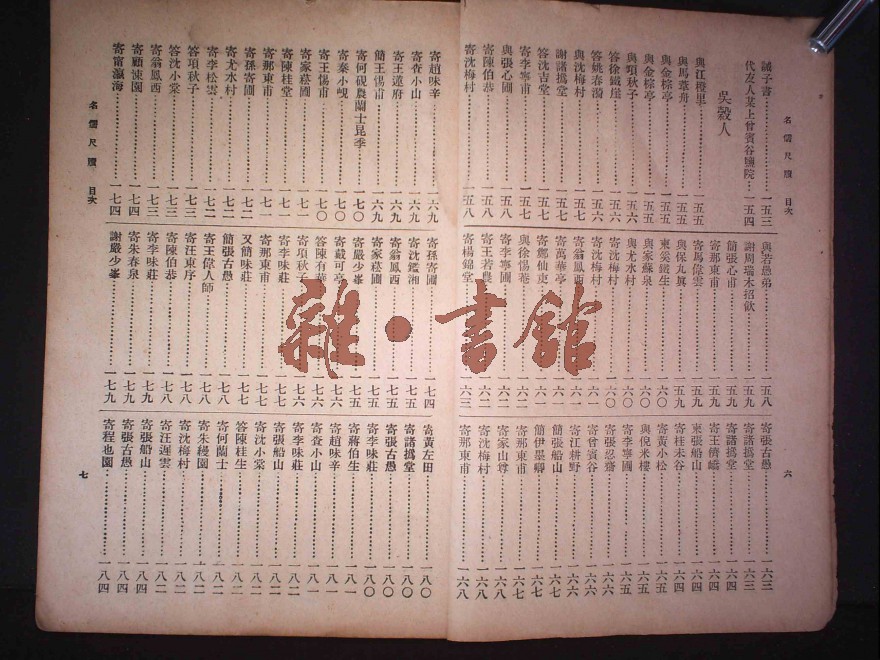 名儒尺牘 目次
六
誡子書……一五三
代友人某上曾賓谷鹽院…一五四
吳穀人
與江橙里……一五五
與馬葦舟……一五五
與金棕亭……一五五
與金棕亭……一五五
與項秋子……一五六
答徐鐵崖……一五六
答姚春漪……一五六
與沈梅村……一五七
謝諸撝堂……一五七
答沈吉堂……一五七
寄李寧甫……一五七
與張心圃……一五八
寄陳伯恭……一五八
寄沈梅村……一五八
與若愚弟……一五八
謝周瑞木招飲……一五九
簡張心甫……一五九
寄那東甫……一五九
寄馬偉雲……一五九
與保九與……一五九
柬奚鐵生……一六〇
與家蘇泉……一六〇
與尤水村……一六〇
寄沈梅村……一六〇
寄沈梅村……一六一
寄翁鳳西……一六一
寄萬華亭……一六一
寄鄭仙吏……一六一
與徐惕菴……一六二
寄李寧圃……一六二
寄王若農……一六二
寄楊錦堂……一六三
寄張古愚……一六三
寄諸撝堂……一六三
寄諸撝堂……一六四
寄王儕嶠……一六四
柬張船山……一六四
寄桂未谷……一六四
寄黃小松……一六五
與倪米樓……一六五
寄李寧圃……一六五
寄張忍齋……一六六
寄曾賓谷……一六六
寄江耕野……一六六
簡張船山……一六七
簡伊墨卿……一六七
寄那東甫……一六七
寄家山尊……一六八
寄沈梅村……一六八
寄那東甫……一六八
寄趙味辛……一六九
寄查小山……一六九
寄王蓬府……一六九
簡王惕甫……一六九
寄何硯農蘭士昆季……一七〇
寄秦小峴……一七〇
寄王惕甫……一七〇
寄家菘圃……一七一
寄陳桂堂……一七一
寄那東甫……一七一
寄孫寄圃……一七二
寄尤水村……一七二
寄李松雲……一七二
答項秋子……一七三
答沈小棠……一七三
寄翁鳳西……一七三
寄顧涑園……一七四
寄甯瀛海……一七四
寄孫寄圃……一七四
寄沈鑑湘……一七五
寄翁鳳西……一七五
寄家菘圃……一七五
寄嚴少峯……一七六
寄戴可亭……一七六
答陳有華……一七六
寄項秋子……一七六
寄李味莊……一七七
寄那東甫……一七七
又簡味莊……一七七
簡張古愚……一七八
寄王偉人師……一七八
寄汪東序……一七八
寄陳伯恭……一七八
寄李味莊……一七九
寄朱春泉……一七九
謝嚴少峯……一七九
寄黃左田……一八〇
寄諸撝堂……一八〇
寄張古愚……一八〇
寄李味莊……一八〇
寄蔣伯生……一八一
寄趙味辛……一八一
寄查小山……一八一
寄李味莊……一八二
寄張船山……一八二
寄沈小棠……一八二
答陳桂生……一八二
寄何蘭士……一八二
寄朱縵園……一八二
寄沈梅村……一八二
寄汪遲雲……一八二
寄張船山……一八四
寄張古愚……一八四
寄程也園……一八四
名儒尺牘 目次
七
雜·書館